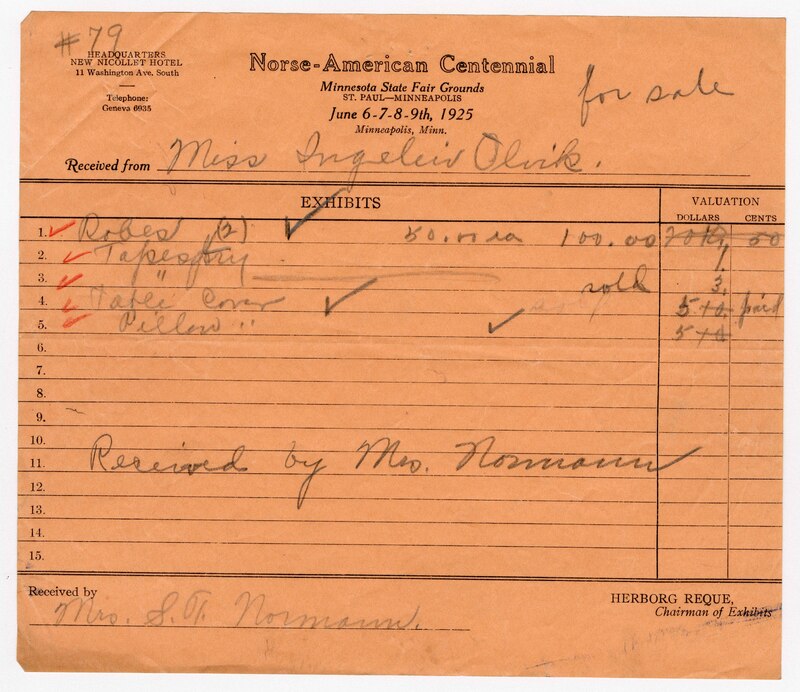 #79
HEADQUARTERS
NEW NICOLLET HOTEL
11 Washington Ave. South
Telephone:
Geneva 6935
Norse-American Centennial
Minnesota State Fair Grounds
ST. PAUL—MINNEAPOLIS
June 6-7-8-9th, 1925
Minneapolis, Minn.
for sale
Received from Miss Ingeleiv Olvik.
EXHIBITS VALUATION
DOLLARS CENTS
1. Robes (2) 50.00 ea 100.00 50
2. Tapestry 1.
3. " sold 3.
4. Table Cover paid
5. Pillow "
6.
7.
8.
9.
10.
11. Received by Mrs. Normann
12.
13.
14.
15.
Received by
Mrs. S. T. Normann.
HERBORG REQUE,
Chairman of Exhibits